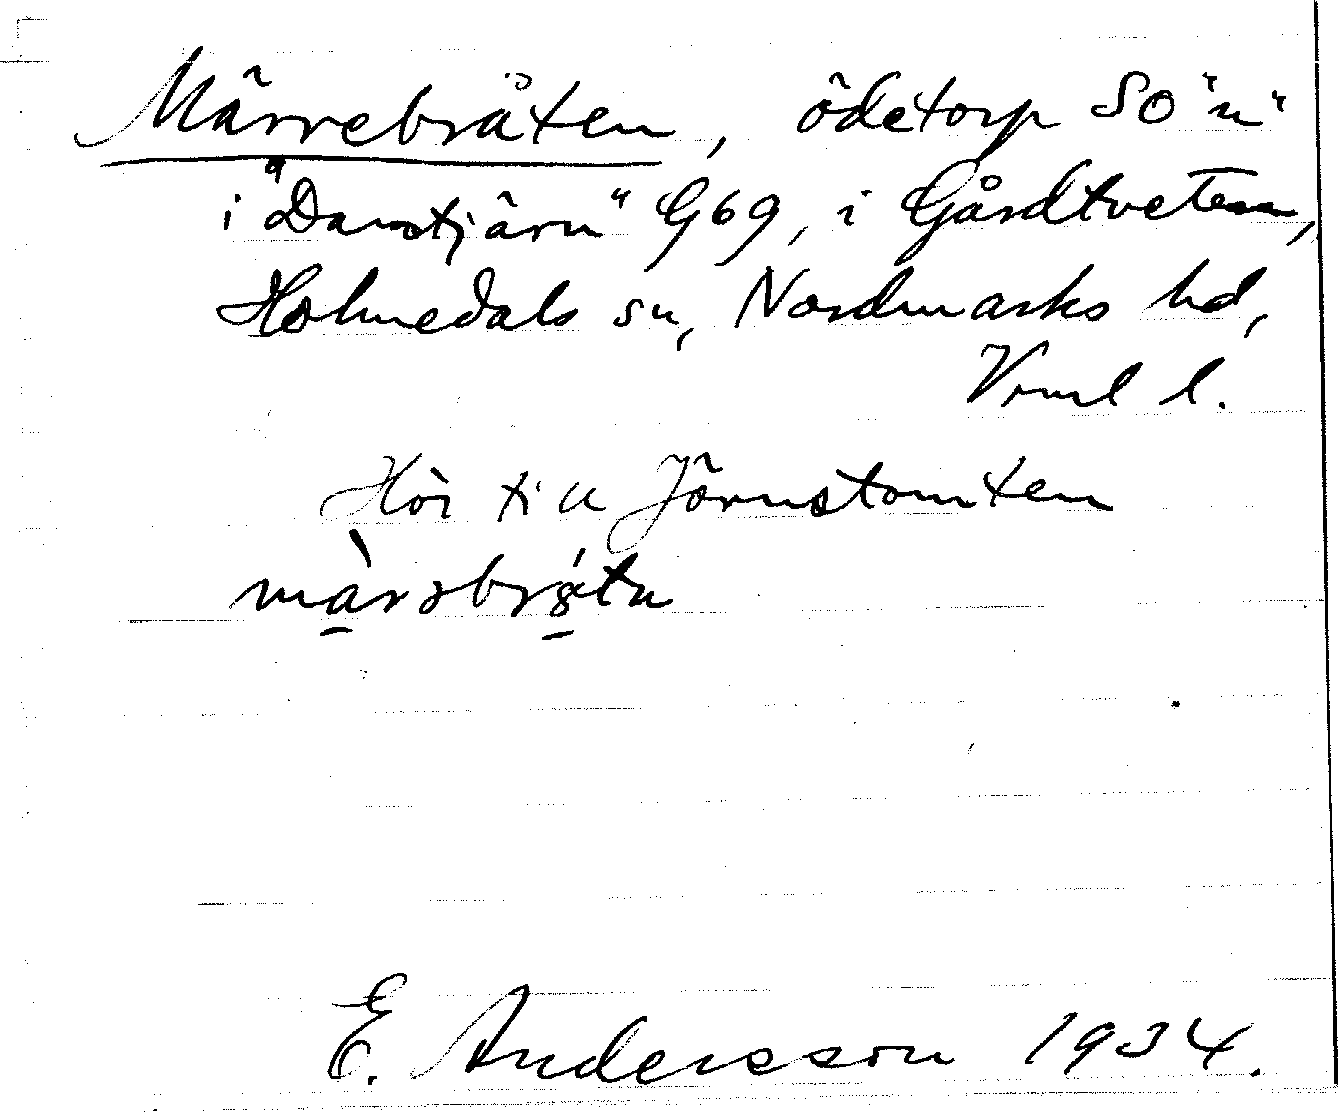 Märrebråten, ödetorp SO "n"
i "Damtjärn" G69, i Gårdtveten,
Holmedals sn, Nordmarks hd,
Vrml l.
Hör till Jörnstomten
E. Andersson 1934.